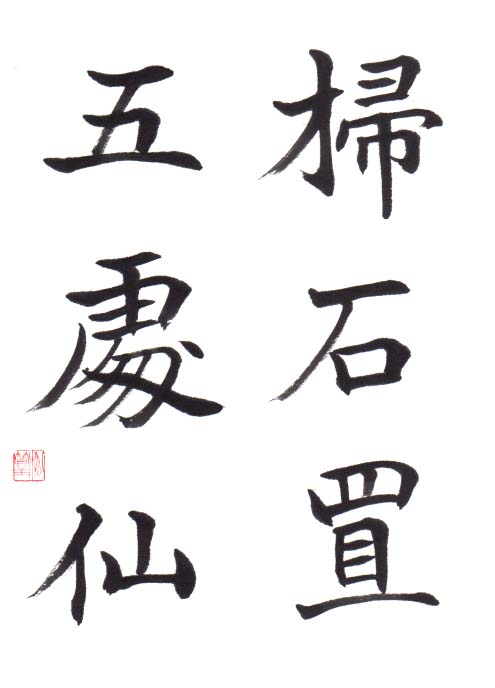 掃石置
五處仙